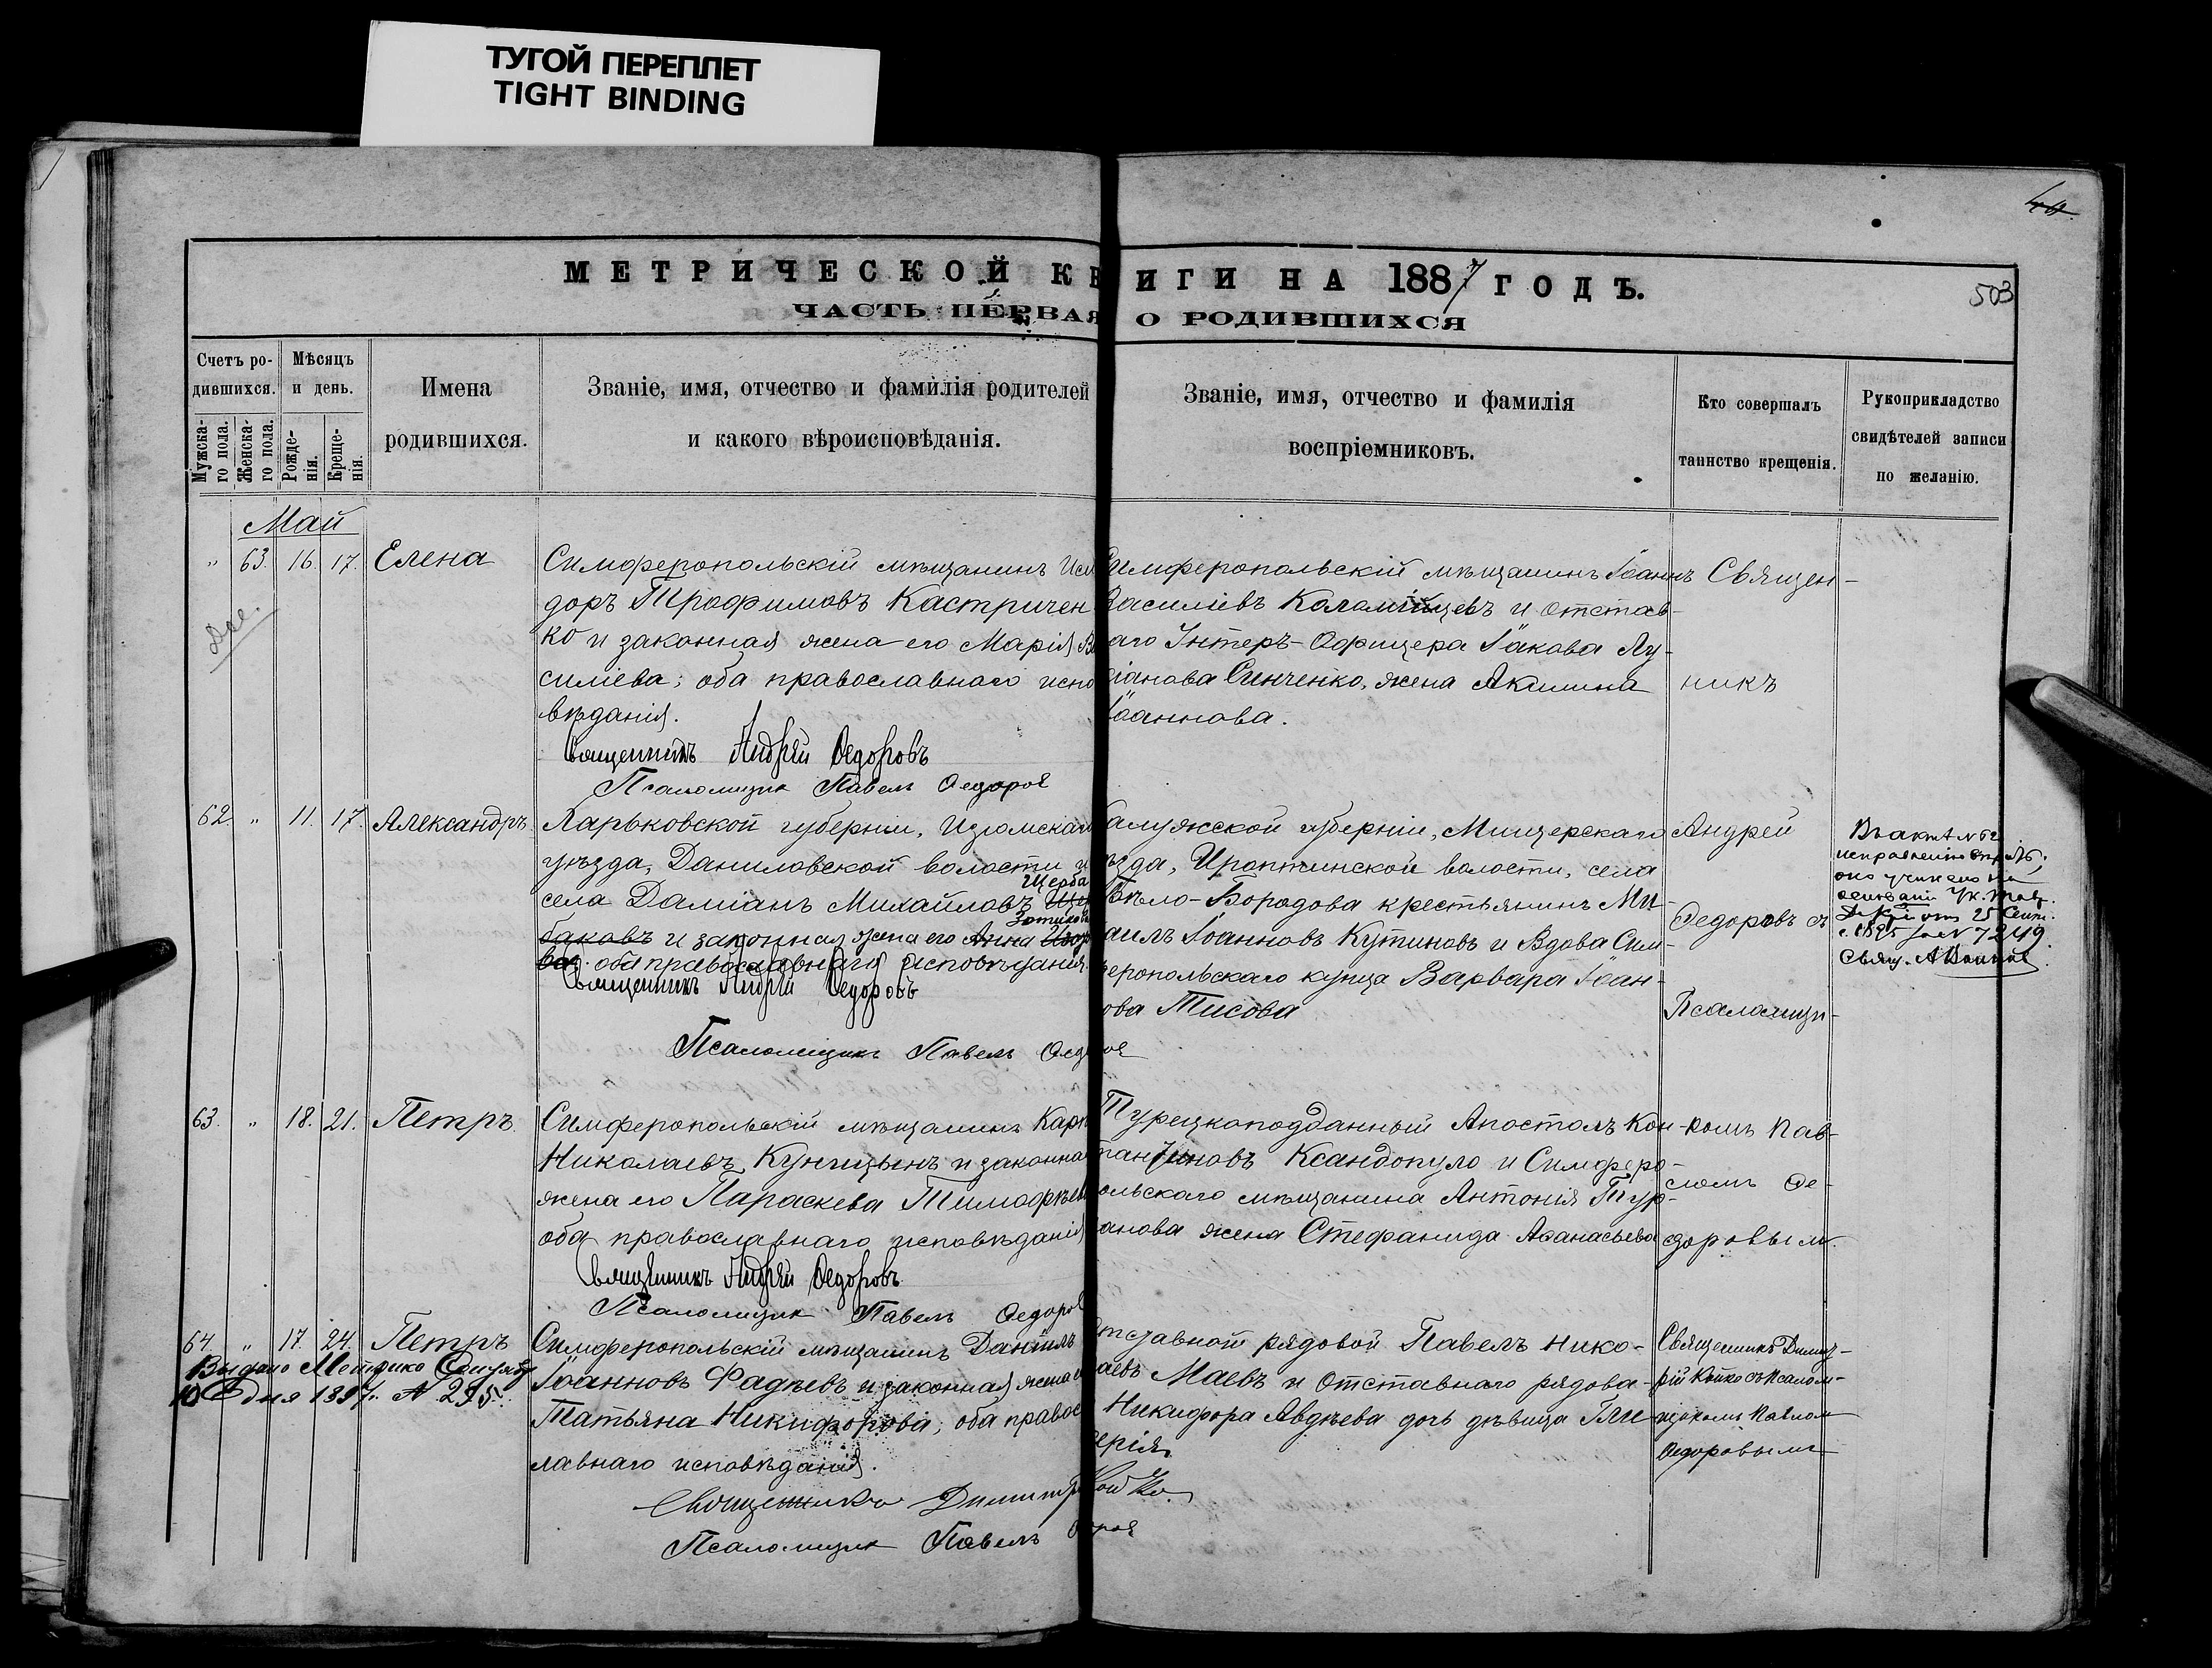 ТУГОЙ ПЕРЕПЛЕТ
TIGHT BINDING
503
МЕТРИЧЕСКОЙ КНИГИ НА 1887 ГОДЪ.
ЧАСТЬ ПЕРВАЯ О РОДИВШИХСЯ
Счетъ ро-
дившихся.
Мужска-
го пола.
Женска-
го пола.
Мѣсяцъ
и день.
Рожде-
нія.
Креще-
нія.
Имена
родившихся.
Званіе, имя, отчество и фамилія родителей
и какого вѣроисповѣданія.
Званіе, имя, отчество и фамилія
воспріемниковъ.
Кто совершалъ
таинство крещенія.
Рукоприкладство
свидѣтелей записи
по желанію.
Май
" 63. 16. 17. Елена
Симферопольскій мѣщанинъ Иси
доръ Трофимовъ Кастричен
ко и законная жена его Марія Ва
силіева; оба православнаго испо
вѣданія.
Священникъ Андрей Ѳедоровъ
Псаломщик Павелъ Ѳедоров
Симферопольскій мѣщанинъ Іоаннъ
Василіевъ Коломійцевъ и отстав-
аго Унтеръ-Офицера Іакова Лу-
кіанова Синченко, жена Акилина
Іоаннова.
Священ-
никъ
62. " 11. 17. Александръ
Харьковской губерніи, Изюмскаго
уѣзда, Даниловской волости и
села Даміанъ Михайловъ Щерба
баковъ и законная жена его Анна
Зотикова
ва оба православнаго исповѣданія.
Священникъ Андрей Ѳедоровъ
Псаломщикъ Павелъ Ѳедоров
алужской губерніи, Мищерскаго
ѣзда, волости, села
Бѣло-Бородова крестьянинъ Ми-
аилъ Іоанновъ Кутиновъ и Вдова Сим-
феропольскаго купца Варвара Іоан-
ова Тисова
Андрей
Ѳедоровъ съ
Псаломщи-
Въ актѣ № 62
исправленіе
оно учинено на
основаніи Ук. Тавр.
Д. К. отъ 25 Сент.
1895 за № 7249.
Свящ.
63. " 18. 21. Петръ
Симферопольскій мѣщанинъ Карп
Николаевъ Куницынъ и законна
жена его Параскева Тимофѣева
оба православнаго исповѣданія
Священникъ Андрей Ѳедоровъ
Псаломщик Павелъ Ѳедоров
Турецкоподданный Апостолъ Кон-
стантиновъ Ксандопуло и Симферо-
ольскаго мѣщанина Антонія Тур-
анова жена Стефанида Аѳанасьева
комъ Пав-
ломъ Ѳе-
доровымъ.
64. " 17. 24. Петръ
Выдано
дня 1897 г. № 295.
Симферопольскій мѣщанинъ Даніилъ
Іоанновъ Фадѣевъ и законная жена е
Татьяна Никифорова; оба правос
лавнаго исповѣданія.
Священникъ Димитрій Койко.
Псаломщик Павелъ
Отставной рядовой Павелъ Нико-
лаевъ Маевъ и Отставнаго рядова-
Никифора Авдѣева дочь дѣвица Гли
керія
Священникъ Димит-
рій Койко съ Псалом-
щикомъ Павлом
Ѳедоровымъ